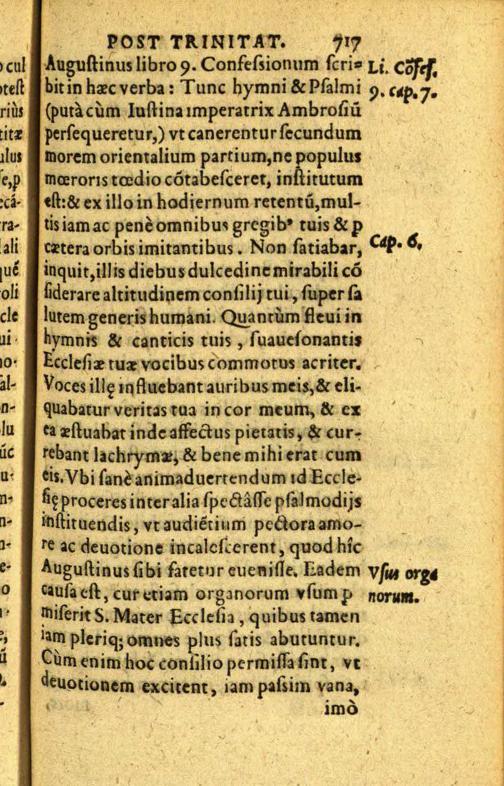 POST TRINITAT. 717
Augustinus libro 9. Confessionum scri=
bit in hæc verba : Tunc hymni & Psalmi
(putà cùm Iustina imperatrix Ambrosiū
persequeretur,) vt canerentur secundum
morem orientalium partium, ne populus
mœroris tœdio cōtabesceret, institutum
est: & ex illo in hodiernum retentū, mul-
tis iam ac penè omnibus gregibꝰ tuis & ꝑ
cætera orbis imitantibus. Non satiabar,
inquit, illis diebus dulcedine mirabili cō
siderare altitudinem consilij tui, super sa
lutem generis humani. Quantùm fleui in
hymnis & canticis tuis, suauesonantis
Ecclesiæ tuæ vocibus commotus acriter.
Voces illę influebant auribus meis, & eli-
quabatur veritas tua in cor meum, & ex
ea æstuabat inde affectus pietatis, & cur-
rebant lachrymæ, & bene mihi erat cum
eis. Vbi sanè animaduertendum id Eccle-
się proceres inter alia spectâsse psalmodijs
instituendis, vt audiētium pectora amo-
re ac deuotione incalescerent, quod hîc
Augustinus sibi fatetur euenisse. Eadem
causa est, cur etiam organorum vsum ꝑ
miserit S. Mater Ecclesia, quibus tamen
iam pleriq; omnes plus satis abutuntur.
Cùm enim hoc consilio permissa sint, vt
deuotionem excitent, iam passim vana,
imò
Li. Cōfes.
9. cap. 7.
Cap. 6.
Vsus orga
norum.